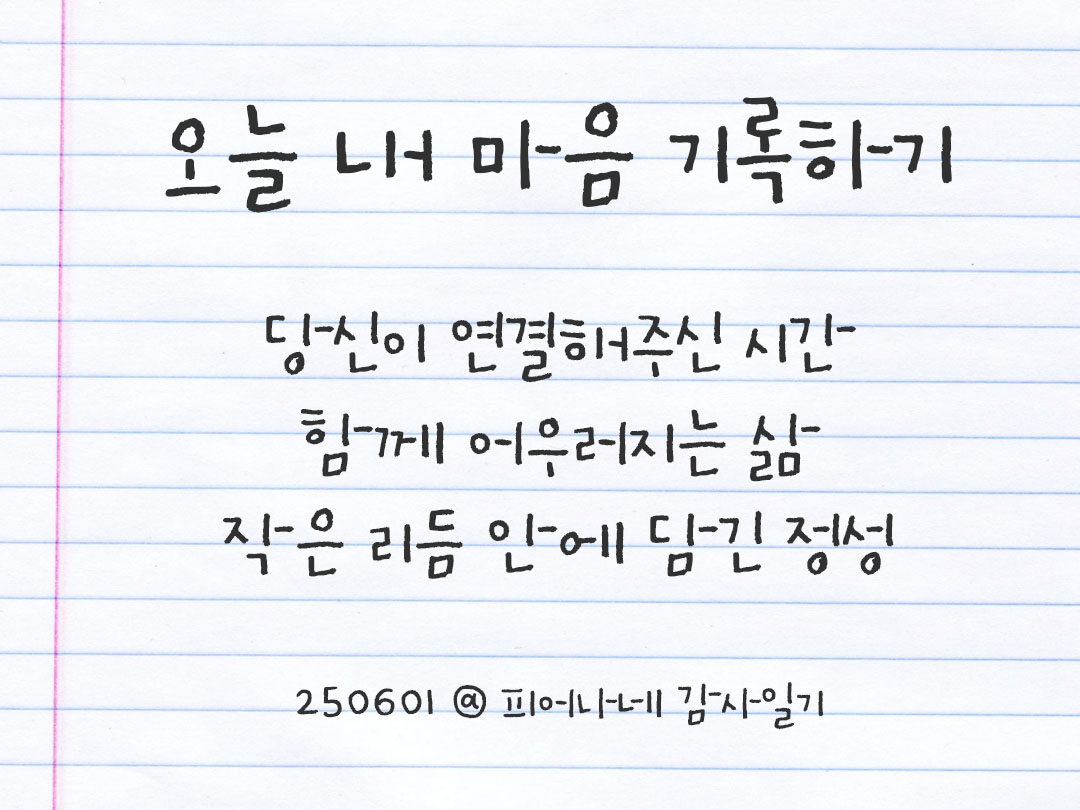 오늘 내 마음 기록하기
당신이 연결해주신 시간
함께 어우러지는 삶
작은 리듬 안에 담긴 정성
250601 @ 피어나네 감사일기